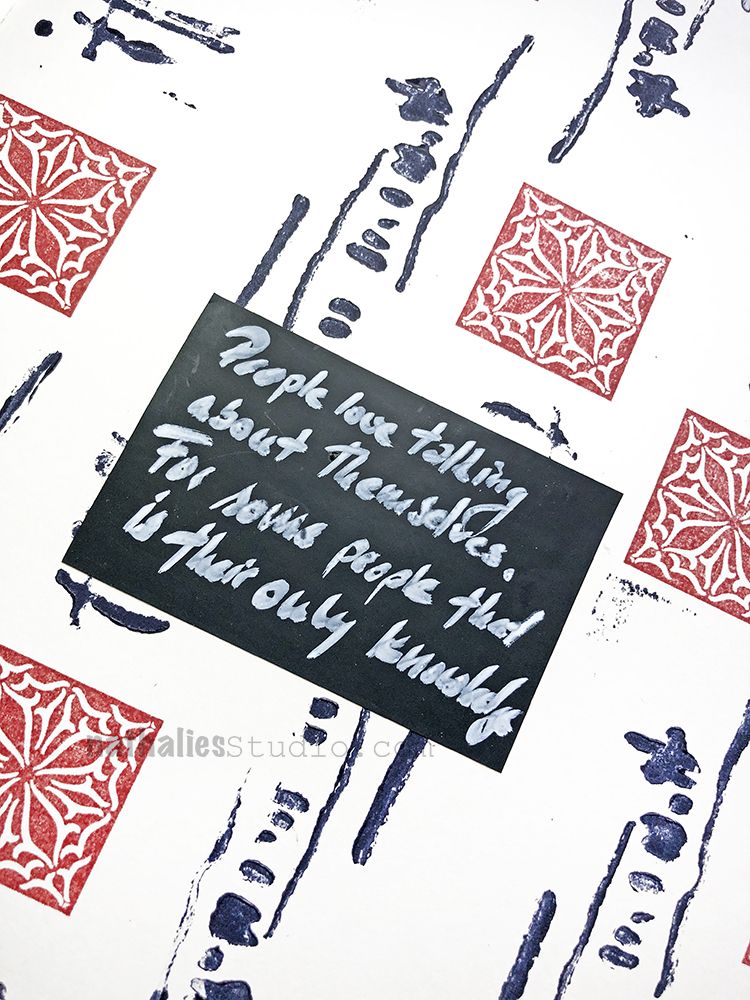 People love talking
about Themselves.
For some people that
is their only knowledge
nathaliesStudio.com